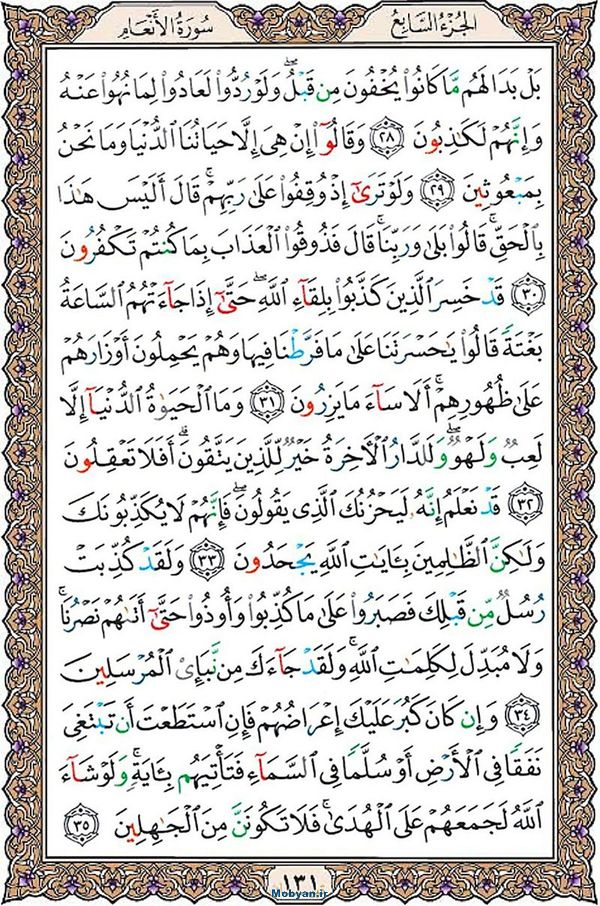 الجُزءُ السَّابِع
سُورَةُ الأَنْعَام
بَلْ بَدَا لَهُم مَّا كَانُوا۟ يُخْفُونَ مِن قَبْلُ ۖ وَلَوْ رُدُّوا۟ لَعَادُوا۟ لِمَا نُهُوا۟ عَنْهُ
وَإِنَّهُمْ لَكَـٰذِبُونَ ٢٨ وَقَالُوٓا۟ إِنْ هِىَ إِلَّا حَيَاتُنَا ٱلدُّنْيَا وَمَا نَحْنُ
بِمَبْعُوثِينَ ٢٩ وَلَوْ تَرَىٰٓ إِذْ وُقِفُوا۟ عَلَىٰ رَبِّهِمْ ۚ قَالَ أَلَيْسَ هَـٰذَا
بِٱلْحَقِّ ۚ قَالُوا۟ بَلَىٰ وَرَبِّنَا ۚ قَالَ فَذُوقُوا۟ ٱلْعَذَابَ بِمَا كُنتُمْ تَكْفُرُونَ
٣٠ قَدْ خَسِرَ ٱلَّذِينَ كَذَّبُوا۟ بِلِقَآءِ ٱللَّهِ ۖ حَتَّىٰٓ إِذَا جَآءَتْهُمُ ٱلسَّاعَةُ
بَغْتَةً قَالُوا۟ يَـٰحَسْرَتَنَا عَلَىٰ مَا فَرَّطْنَا فِيهَا وَهُمْ يَحْمِلُونَ أَوْزَارَهُمْ
عَلَىٰ ظُهُورِهِمْ ۚ أَلَا سَآءَ مَا يَزِرُونَ ٣١ وَمَا ٱلْحَيَوٰةُ ٱلدُّنْيَآ إِلَّا
لَعِبٌ وَلَهْوٌ ۖ وَلَلدَّارُ ٱلْـَٔاخِرَةُ خَيْرٌ لِّلَّذِينَ يَتَّقُونَ ۗ أَفَلَا تَعْقِلُونَ
٣٢ قَدْ نَعْلَمُ إِنَّهُۥ لَيَحْزُنُكَ ٱلَّذِى يَقُولُونَ ۖ فَإِنَّهُمْ لَا يُكَذِّبُونَكَ
وَلَـٰكِنَّ ٱلظَّـٰلِمِينَ بِـَٔايَـٰتِ ٱللَّهِ يَجْحَدُونَ ٣٣ وَلَقَدْ كُذِّبَتْ
رُسُلٌ مِّن قَبْلِكَ فَصَبَرُوا۟ عَلَىٰ مَا كُذِّبُوا۟ وَأُوذُوا۟ حَتَّىٰٓ أَتَىٰهُمْ نَصْرُنَا ۚ
وَلَا مُبَدِّلَ لِكَلِمَـٰتِ ٱللَّهِ ۚ وَلَقَدْ جَآءَكَ مِن نَّبَإِى۟ ٱلْمُرْسَلِينَ
٣٤ وَإِن كَانَ كَبُرَ عَلَيْكَ إِعْرَاضُهُمْ فَإِنِ ٱسْتَطَعْتَ أَن تَبْتَغِىَ
نَفَقًا فِى ٱلْأَرْضِ أَوْ سُلَّمًا فِى ٱلسَّمَآءِ فَتَأْتِيَهُم بِـَٔايَةٍ ۚ وَلَوْ شَآءَ
ٱللَّهُ لَجَمَعَهُمْ عَلَى ٱلْهُدَىٰ ۚ فَلَا تَكُونَنَّ مِنَ ٱلْجَـٰهِلِينَ ٣٥
١٣١
Mobyan.ir